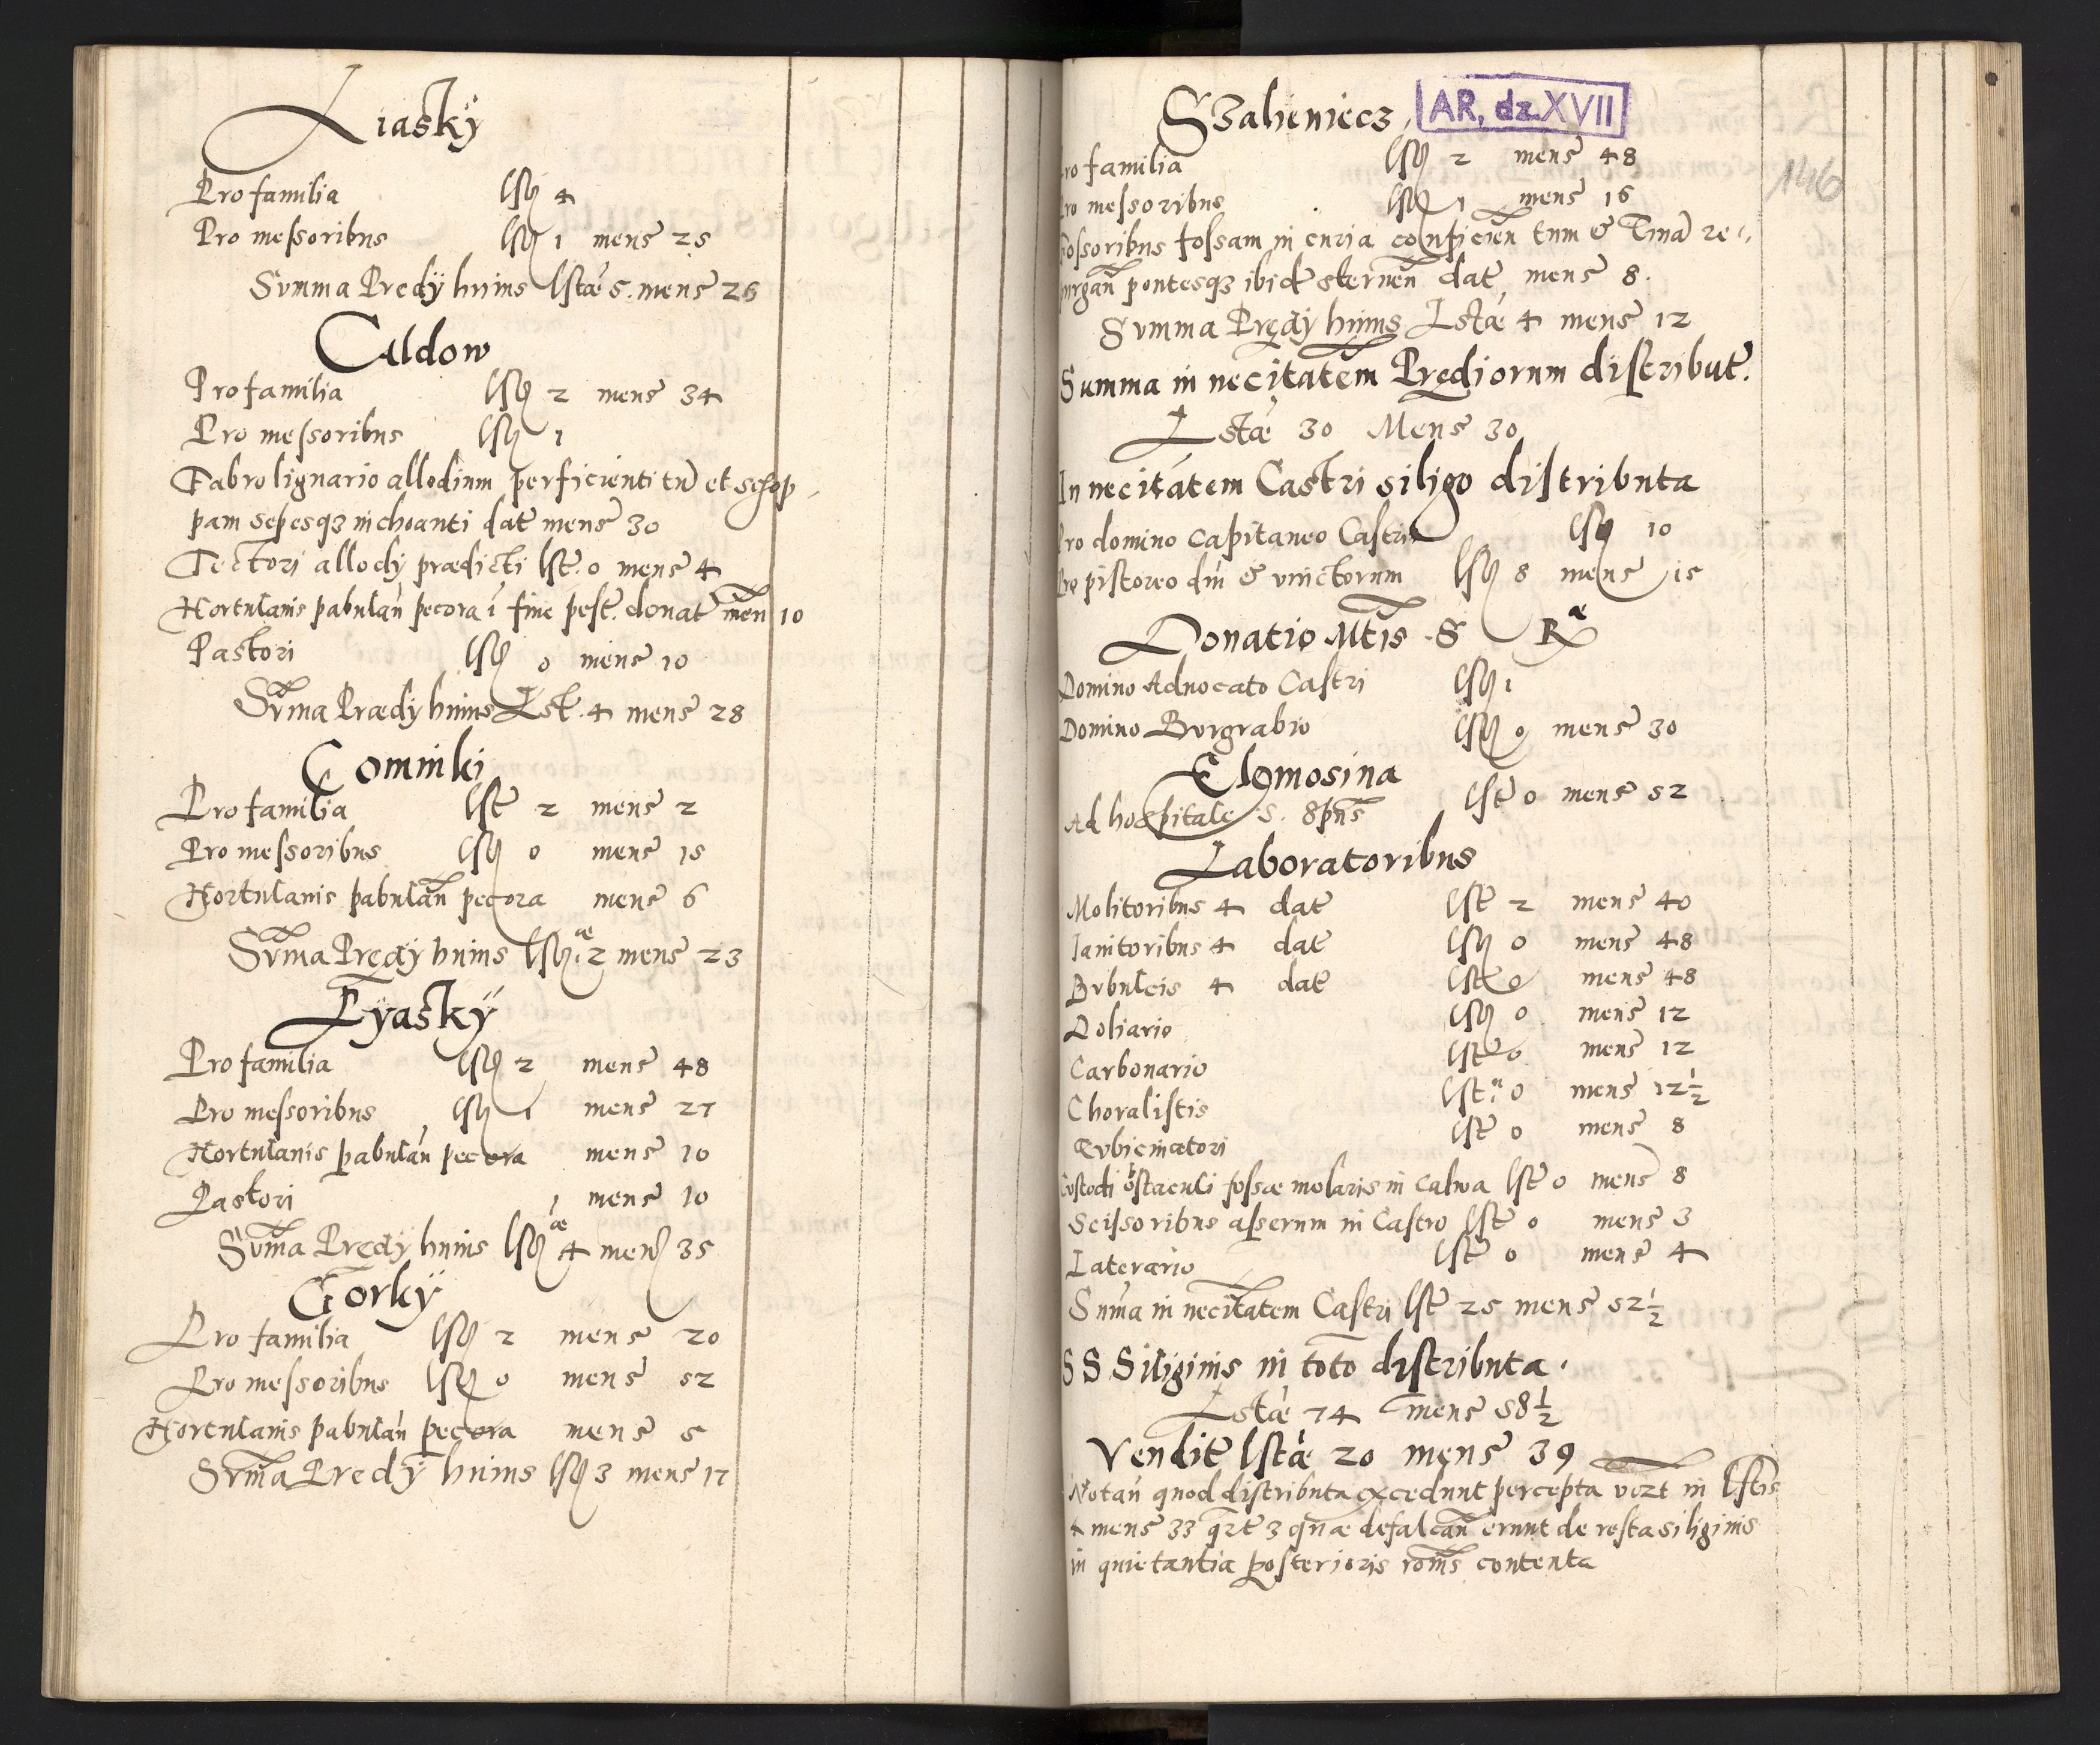 Liasky
Pro familia lsth 4
Pro messoribus lsth 1 mens 25
Summa Predÿ huius lstæ 5. mens 25
Caldow
Pro familia lsth 2 mens 34
Pro messoribus lsth 1
Fabro lignario allodium perficienti tum et schop
pam sepesqз inchoanti dat mens 30
Tectori allodÿ prædicti lst. 0 mens 4
Hortulanis pabulan pecora i fine pest. donat men 10
Pastori lsth 0 mens 10
Suma Prædÿ huius Lst. 4 mens 28
Cominki
Pro familia lst 2 mens 2
Pro messoribus lsth 0 mens 15
Hortulanis pabulan pecora mens 6
Suma Predÿ huius lsthæ 2 mens 23
Lyasky
Pro familia lsth 2 mens 48
Pro messoribus lsth 1 mens 27
Hortulanis pabulan pecora mens 10
Pastori mens 10
Suma Predÿ huius lsthæ 4 mens 35
Gorkÿ
Pro familia lsth 2 mens 20
Pro messoribus lsth 0 mens 52
Hortulanis pabulan pecora mens 5
Suma Predÿ huius lsth 3 mens 17
Szalieniecz AR, dz. XVII
146
ro familia lsth 2 mens 48
ro messoribus lsth 1 mens 16
Fossoribus fossam in curia conficien tum &
purgan pontesqз ibide sternen dat mens 8.
Summa Predÿ huius Lstæ 4 mens 12
Summa in necitatem Prediorum distribut.
Lstæ 30 Mens 30
In necitatem Castri siligo distributa
Pro domino Capitaneo Castri lsth 10
Pro pistoreo din & vinctorum lsth 8 mens 15
Donatio Mtis S Ræ
Domino Aduocato Castri lsth 1
Domino Burgrabio lsth 0 mens 30
Elemosina
Ad hospitale S. Spns lst 0 mens 52
Laboratoribus
Molitoribus 4 dat lst 2 mens 40
Ianitoribus 4 dat lsth 0 mens 48
Bubulcis 4 dat lst 0 mens 48
Doliario lsth 0 mens 12
Carbonario lst 0 mens 12
Choralistis lst 0 mens 12 1/2
Tubicinatori lst 0 mens 8
Custodi obstaculi fossæ molaris in Calwa lst 0 mens 8
Scissoribus asserum in Castro lst 0 mens 3
Laterario lst 0 mens 4
Suma in necitatem Castri lst 25 mens 52 1/2
S S Siliginis in toto distributa.
Lstæ 74 mens 58 1/2
Vendit lstæ 20 mens 39
Notan quod distributa excedunt percepta vezt in lstis
4 mens 33 qrt 3 quæ defalcan erunt de resta siliginis
in quietantia posterioris roms contenta